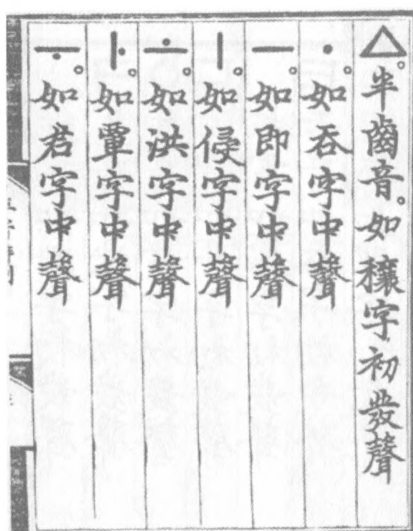 ㅿ。半齒音。如穰字初發聲
ㆍ。如呑字中聲
ㅡ。如即字中聲
ㅣ。如侵字中聲
ㅗ。如洪字中聲
ㅏ。如覃字中聲
ㅜ。如君字中聲